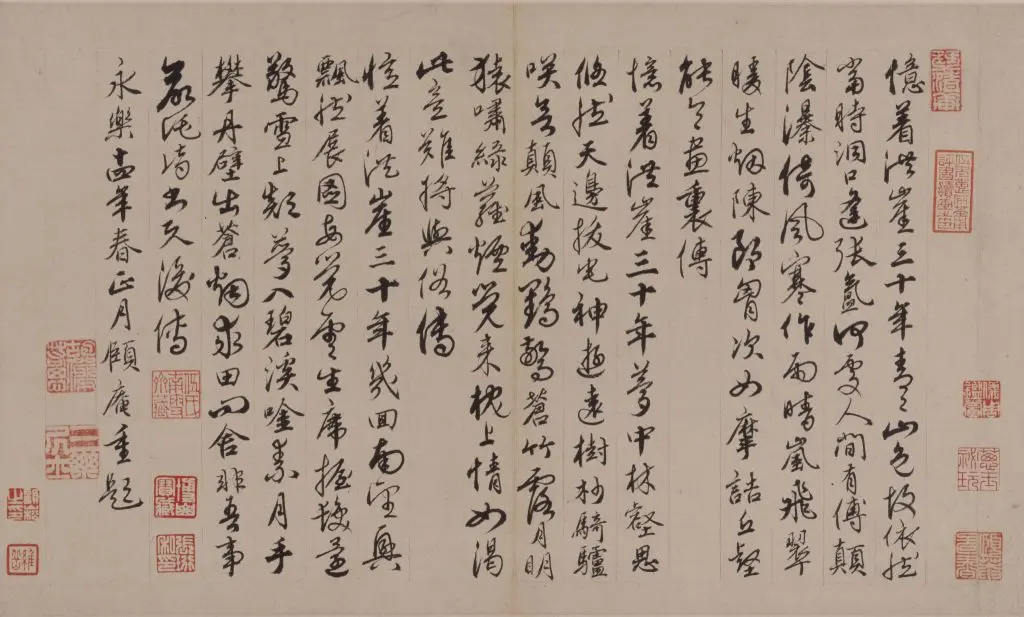 憶着洪崖三十年青青山色故依然
當時洞口逢張氳何處人間有傅顛
陰瀑倚風寒作雨晴嵐飛翠
暖生烟陳郎胸次如摩詰丘壑
能令畫裏傳
憶着洪崖三十年夢中林壑思
翛然天邊拔宅神遊遠樹杪騎驢
笑若顛風動鶴驚蒼竹露月明
猿嘯綠蘿煙覺来枕上情如渴
此意難將與俗傳
憶着洪崖三十年幾回南望興
飄然展圖每覺雲生席握髮還
驚雪上顛夢入碧溪唫素月手
攀丹壁出蒼烟求田問舍非吾事
傳
永樂十四年春正月頤庵重題